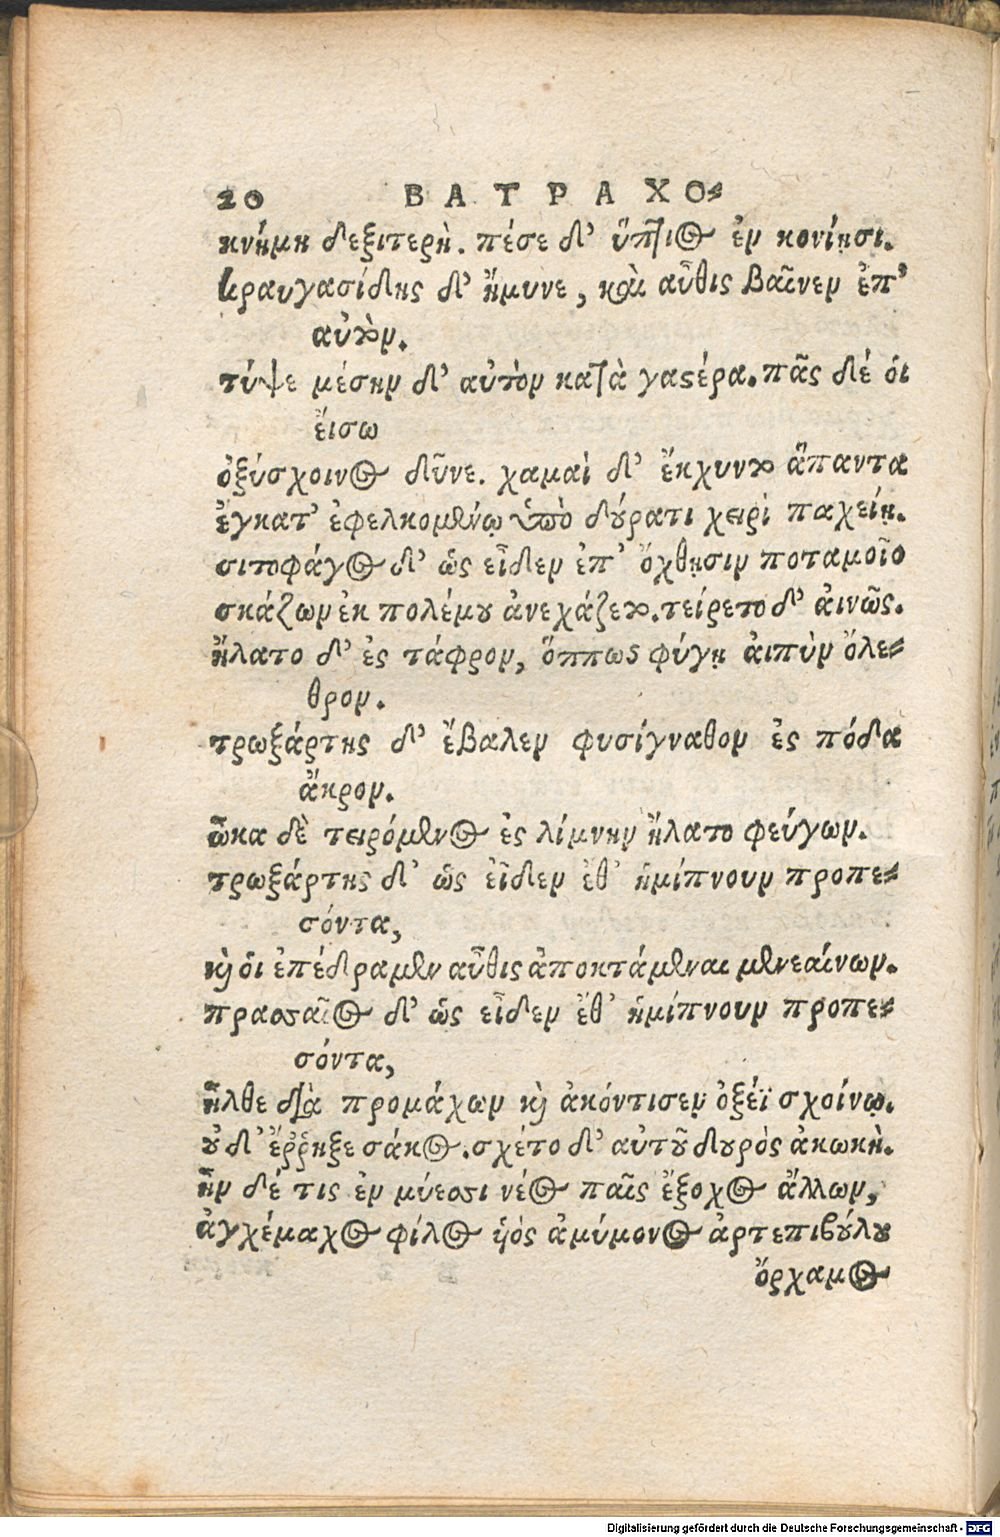 20 ΒΑΤΡΑΧΟ-
κνήμη δεξιτερὴ. πέσε δ' ὕπτιος ἐν κονίῃσι.
κραυγασίδης δ' ἤμυνε, καὶ αὖθις βαῖνεν ἐπ'
αὐτὸν.
τύψε μέσην δ' αὐτὸν κατὰ γαστέρα. πᾶς δέ ὁι
ἔισω
ὀξύσχοινος δῦνε. χαμαὶ δ' ἔκχυντο ἅπαντα
ἔγκατ' ἐφελκομένῳ ὑπὸ δούρατι χειρὶ παχείῃ.
σιτοφάγος δ' ὡς εἶδεν ἐπ' ὄχθῃσιν ποταμοῖο
σκάζων ἐκ πολέμου ἀνεχάζετο. τείρετο δ' ἀινῶς.
ἥλατο δ' ἐς τάφρον, ὅππως φύγῃ ἀιπὺν ὄλε-
θρον.
τρωξάρτης δ' ἔβαλεν φυσίγναθον ἐς πόδα
ἄκρον.
ὦκα δὲ τειρόμενος ἐς λίμνην ἥλατο φεύγων.
τρωξάρτης δ' ὡς εἶδεν ἔθ' ἡμίπνουν προπε-
σόντα,
καὶ ὁι ἐπέδραμεν αὖθις ἀποκτάμεναι μενεαίνων.
πρασσαῖος δ' ὡς εἶδεν ἔθ' ἡμίπνουν προπε-
σόντα,
ἦλθε διὰ προμάχων καὶ ἀκόντισεν ὀξέϊ σχοίνῳ.
οὐ δ' ἔῤῥηξε σάκος. σχέτο δ' αὐτοῦ δουρὸς ἀκωκὴ.
ἦν δέ τις ἐν μύεσσι νέος παῖς ἔξοχος ἄλλων,
ἀγχέμαχος φίλος ὑὸς ἀμύμονος ἀρτεπιβούλου
ὄρχαμος
Digitalisierung gefördert durch die Deutsche Forschungsgemeinschaft - DFG